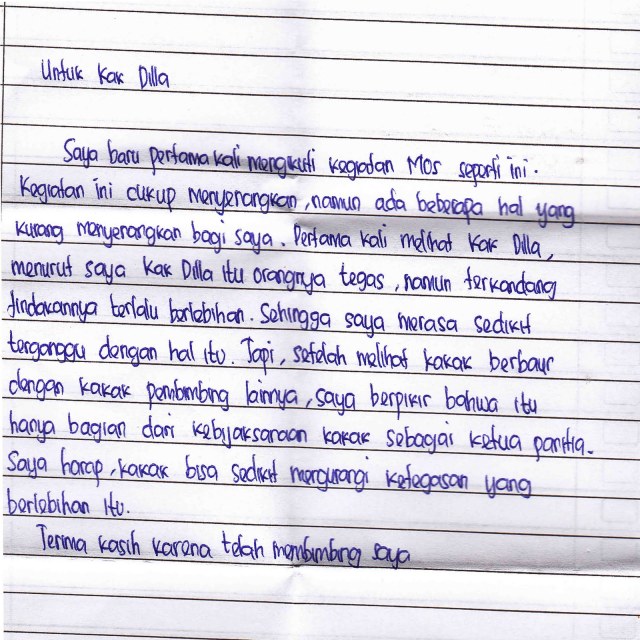 Untuk Kak Dilla
Saya baru pertama kali mengikuti kegiatan MOS seperti ini.
Kegiatan ini cukup menyenangkan, namun ada beberapa hal yang
kurang menyenangkan bagi saya. Pertama kali melihat Kak Dilla,
menurut saya Kak Dilla itu orangnya tegas, namun terkandang
tindakannya terlalu berlebihan. Sehingga saya merasa sedikit
terganggu dengan hal itu. Tapi, setelah melihat kakak berbaur
dengan kakak pembimbing lainnya, saya berpikir bahwa itu
hanya bagian dari kebijaksanaan kakak sebagai ketua panitia.
Saya harap, kakak bisa sedikit mengurangi ketegasan yang
berlebihan itu.
Terima kasih karena telah membimbing saya